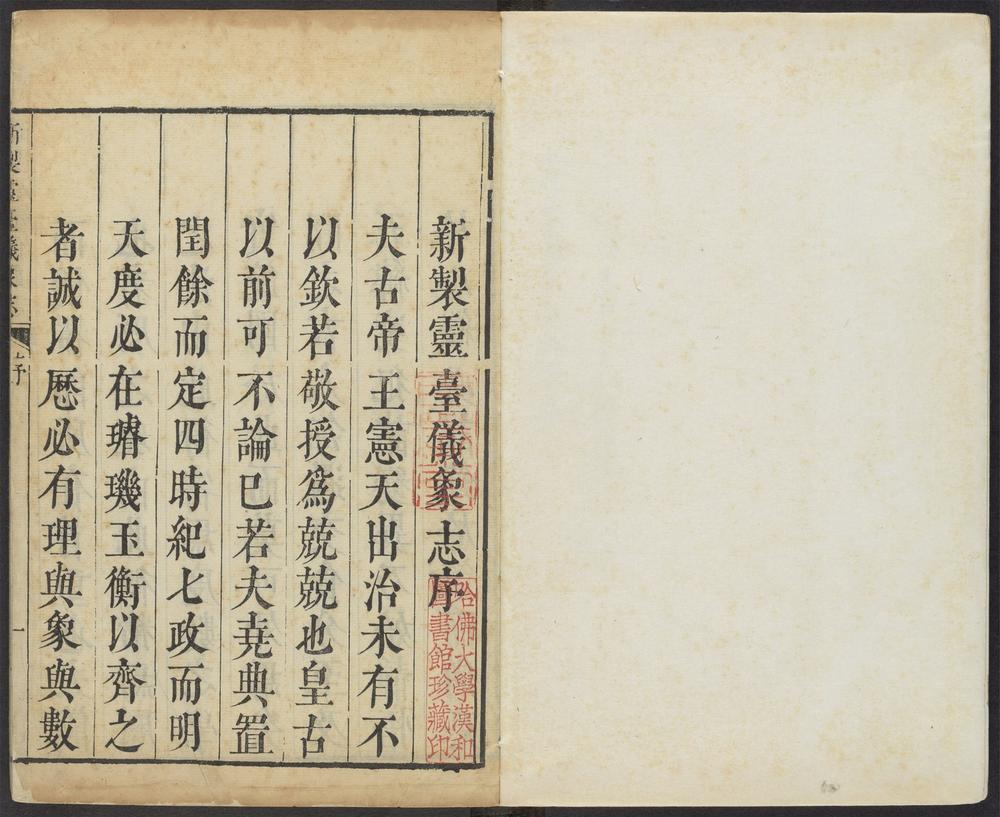 新製靈臺儀象志序
夫古帝王憲天出治未有不
以欽若敬授爲兢兢也皇古
以前可不論已若夫堯典置
閏餘而定四時紀七政而明
天度必在璿璣玉衡以齊之
者誠以曆必有理與象與數
序
一
哈佛大學漢和
圖書館珍藏印